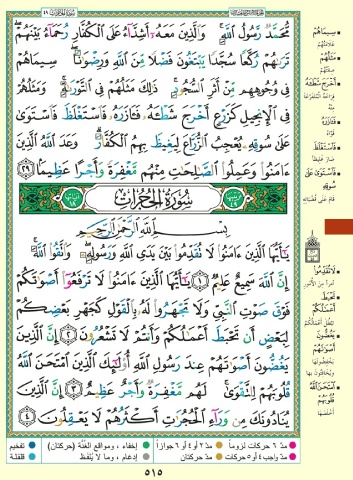 مُّحَمَّدٌ رَّسُولُ ٱللَّهِۚ وَٱلَّذِينَ مَعَهُۥٓ أَشِدَّآءُ عَلَى ٱلۡكُفَّارِ رُحَمَآءُ بَيۡنَهُمۡۖ
تَرَىٰهُمۡ رُكَّعٗا سُجَّدٗا يَبۡتَغُونَ فَضۡلٗا مِّنَ ٱللَّهِ وَرِضۡوَٰنٗاۖ سِيمَاهُمۡ
فِي وُجُوهِهِم مِّنۡ أَثَرِ ٱلسُّجُودِۚ ذَٰلِكَ مَثَلُهُمۡ فِي ٱلتَّوۡرَىٰةِۚ وَمَثَلُهُمۡ
فِي ٱلۡإِنجِيلِ كَزَرۡعٍ أَخۡرَجَ شَطۡـَٔهُۥ فَـَٔازَرَهُۥ فَٱسۡتَغۡلَظَ فَٱسۡتَوَىٰ
عَلَىٰ سُوقِهِۦ يُعۡجِبُ ٱلزُّرَّاعَ لِيَغِيظَ بِهِمُ ٱلۡكُفَّارَۗ وَعَدَ ٱللَّهُ ٱلَّذِينَ
ءَامَنُواْ وَعَمِلُواْ ٱلصَّٰلِحَٰتِ مِنۡهُم مَّغۡفِرَةٗ وَأَجۡرًا عَظِيمَۢا ٢٩
سُورَةُ الحُجُرَاتِ
بِسۡمِ ٱللَّهِ ٱلرَّحۡمَٰنِ ٱلرَّحِيمِ
يَٰٓأَيُّهَا ٱلَّذِينَ ءَامَنُواْ لَا تُقَدِّمُواْ بَيۡنَ يَدَيِ ٱللَّهِ وَرَسُولِهِۦۖ وَٱتَّقُواْ ٱللَّهَۚ
إِنَّ ٱللَّهَ سَمِيعٌ عَلِيمٞ ١ يَٰٓأَيُّهَا ٱلَّذِينَ ءَامَنُواْ لَا تَرۡفَعُوٓاْ أَصۡوَٰتَكُمۡ
فَوۡقَ صَوۡتِ ٱلنَّبِيِّ وَلَا تَجۡهَرُواْ لَهُۥ بِٱلۡقَوۡلِ كَجَهۡرِ بَعۡضِكُمۡ
لِبَعۡضٍ أَن تَحۡبَطَ أَعۡمَٰلُكُمۡ وَأَنتُمۡ لَا تَشۡعُرُونَ ٢ إِنَّ ٱلَّذِينَ
يَغُضُّونَ أَصۡوَٰتَهُمۡ عِندَ رَسُولِ ٱللَّهِ أُوْلَٰٓئِكَ ٱلَّذِينَ ٱمۡتَحَنَ ٱللَّهُ
قُلُوبَهُمۡ لِلتَّقۡوَىٰۚ لَهُم مَّغۡفِرَةٞ وَأَجۡرٌ عَظِيمٌ ٣ إِنَّ ٱلَّذِينَ
يُنَادُونَكَ مِن وَرَآءِ ٱلۡحُجُرَٰتِ أَكۡثَرُهُمۡ لَا يَعۡقِلُونَ ٤
سِيمَاهُمْ
عَلَامَتُهُمْ
مَثَلُهُمْ
صِفَتُهُمْ
أَخْرَجَ شَطْـَٔهُ
فَـَٔازَرَهُ
فَٱسْتَغْلَظَ
فَٱسْتَوَىٰ عَلَىٰ سُوقِهِ
لَا تُقَدِّمُوا
تَحْبَطَ أَعْمَٰلُكُمْ
يَغُضُّونَ أَصْوَٰتَهُمْ
ٱمْتَحَنَ ٱللَّهُ
مدّ ٦ حركات لزوماً مدّ ٢ أو ٤ أو ٦ جوازاً إخفاء، ومواقع الغُنّة (حركتان) تفخيم
مدّ واجب ٤ أو ٥ حركات مدّ حركتان إدغام، وما لا يُلفَظ قلقلة
٥١٥